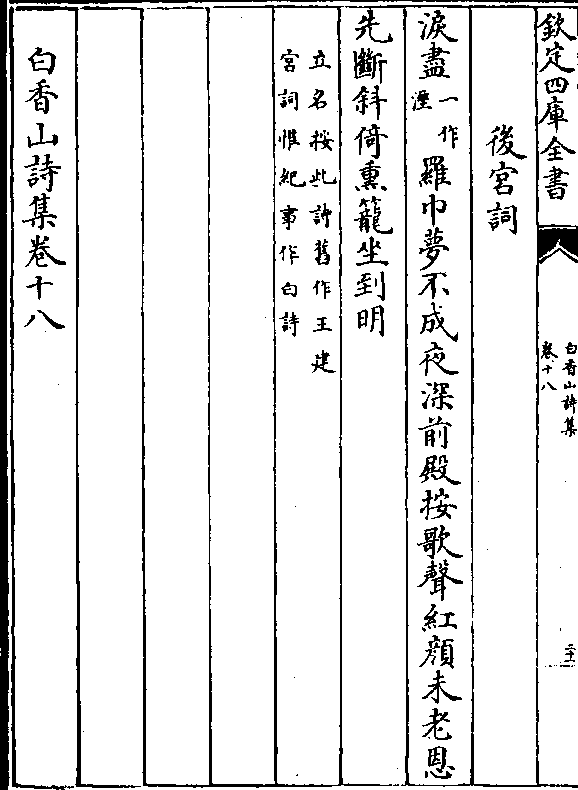 欽定四庫全書
白香山詩集
卷十八
二十一
後宮詞
淚盡一作溼羅巾夢不成夜深前殿按歌聲紅顏未老恩
先斷斜倚熏籠坐到明
立名按此詩舊作王建
宮詞惟紀事作白詩
白香山詩集卷十八